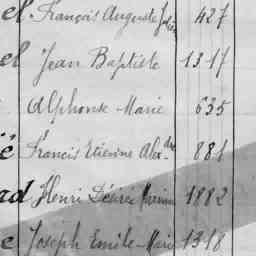 el François Auguste Jules 427
el Jean Baptiste 1317
Alphonse Marie 635
ë Francis Etienne Alex-dre 881
rd Henri Désiré 1882
e Joseph Emile-Marie 1318